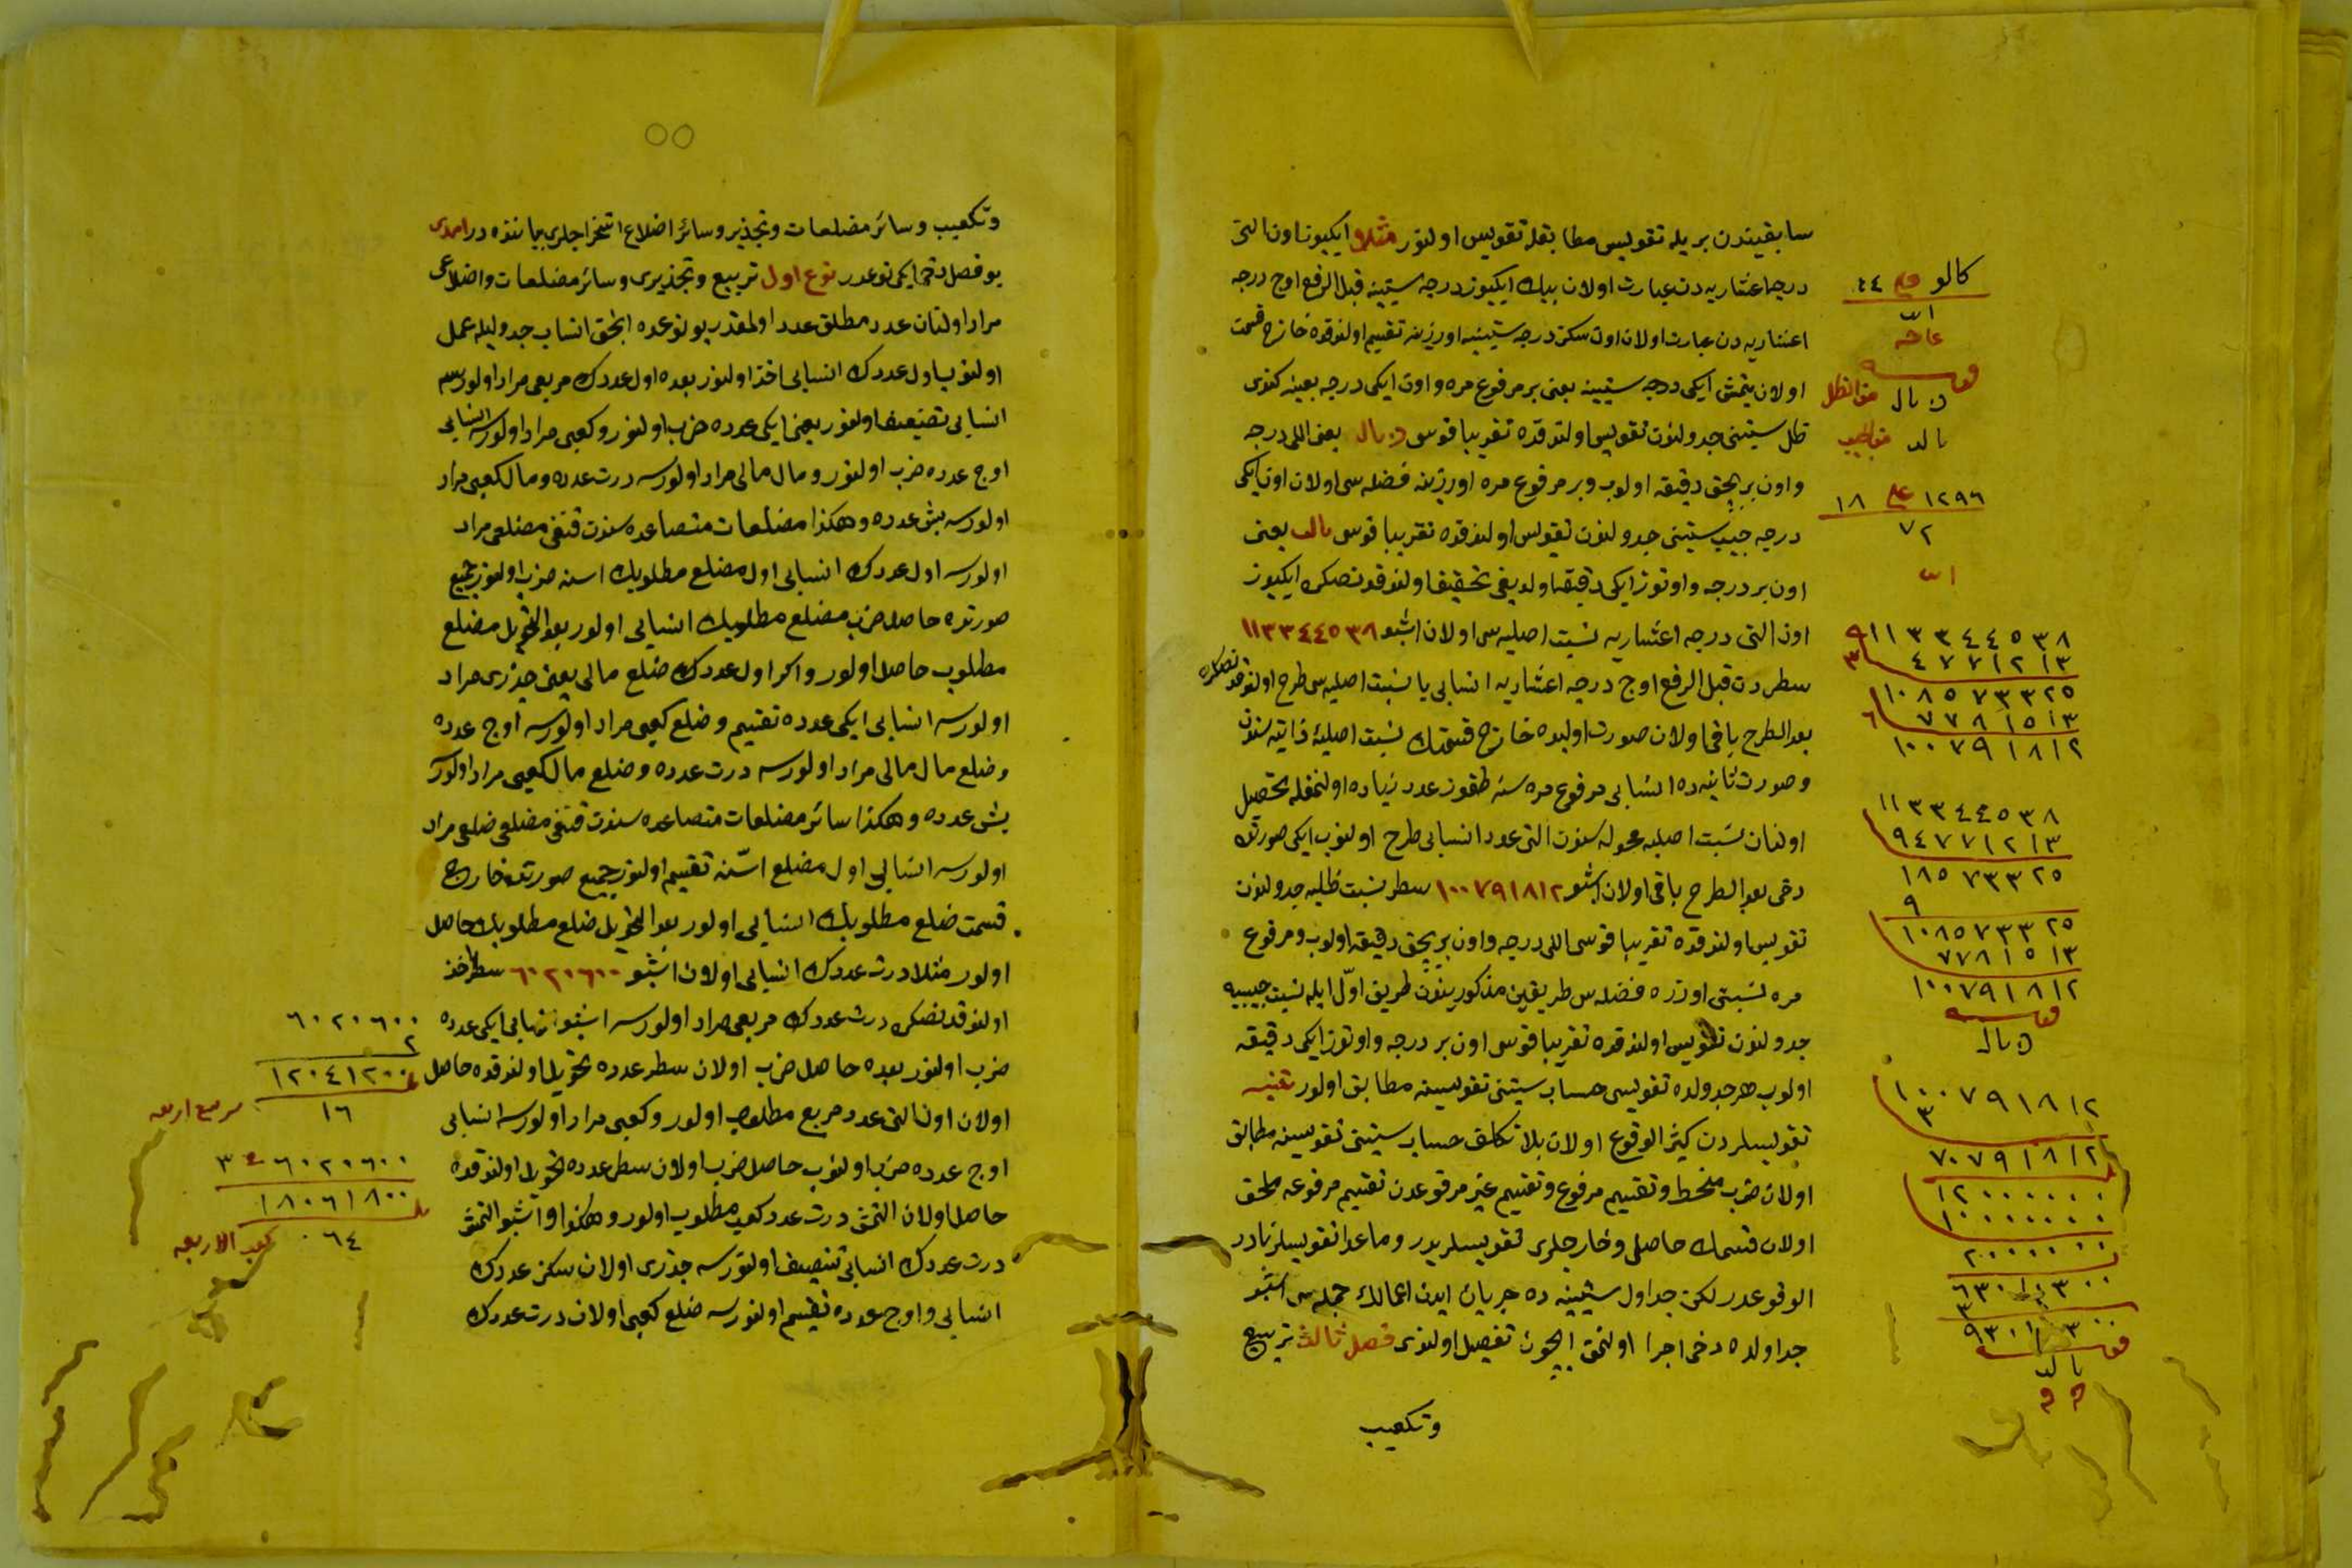 سابقيندن بريله تقويس مطابقله تقويس اولنور مثلا ايكيوز اون التى
درجه اعشاريه دن عبارت اولان بيك ايكيوز درجه ستينيه قبل الرفع اوج درجه
اعشاريه دن عبارت اولان اون سكز درجه ستينيه اوزرينه تقسيم اولندقده خارج قسمت
اولان يتمش ايكى درجه ستينيه يعنى بر مرفوع مره و اون ايكى درجه بعينه كندى
ظل ستينى جدولندن تقويس اولندقده تقريبا قوس ن يال يعنى اللى درجه
و اون بر بچق دقيقه اولوب و بر مرفوع مره اوزرينه فضله سى اولان اون ايكى
درجه جيب ستينى جدولندن تقويس اولندقده تقريبا قوس يالب يعنى
اون بر درجه و اوتوز ايكى دقيقه اولديغى تحقيق اولندقدنصكره ايكيوز
اون التى درجه اعشاريه نسبت اصليه سى اولان اشبو ١١٣٣٤٤٥٣٨
سطردن قبل الرفع اوج درجه اعشاريه انسابى يا نسبت اصليه سى طرح اولندقدنصكره
بعد الطرح باقى اولان صورت اولده خارج قسمتك نسبت اصليه ذاتيه سندن
و صورت ثانيه ده انسابى مرفوع مره سنه طقوز عدد زياده اولنمغله تحصيل
اولنان نسبت اصليه محوله سندن التى عدد انسابى طرح اولنوب ايكى صورتده
دخى بعد الطرح باقى اولان اشبو ١٠٠٧٩١٨١٢ سطر نسبت ظليه جدولندن
تقويس اولندقده تقريبا قوسى اللى درجه و اون بر بچق دقيقه اولوب و مرفوع
مره نسبتى اوزره فضله سى طريقين مذكوريندن طريق اول ايله نسبت جيبيه
جدولندن تقويس اولندقده تقريبا قوسى اون بر درجه و اوتوز ايكى دقيقه
اولوب هر جدولده تقويسى حساب ستينى تقويسينه مطابق اولور تنبيه
تقويسلردن كثير الوقوع اولان بلا تكلف حساب ستينى تقويسينه مطابق
اولان ضرب منحط و تقسيم مرفوع و تقسيم غير مرفوعدن تقسيم مرفوعه ملحق
اولان قسمك حاصلى و خارجلرى تقويسلريدر و ماعدا تقويسلر نادر
الوقوعدر لكن جداول ستينيه ده جريان ايدن اعمالك جمله سى اشبو
جداولده دخى اجرا اولنمق ايچون تفصيل اولندى فصل ثالث تربيع
وتكعيب
كالو
٤٤
عاحه
ن يال
يالب
١٢٩٦ ١٨
٧٢
١١٣٣٤٤٥٣٨
٩
٤٧٧١٢١٣
٣
١٠٨٥٧٣٣٢٥
٧٧٨١٥١٣
٦
١٠٠٧٩١٨١٢
١١٣٣٤٤٥٣٨
٩٤٧٧١٢١٣
١٨٥٧٣٣٢٥
٩
١٠٨٥٧٣٣٢٥
٧٧٨١٥١٣
١٠٠٧٩١٨١٢
ن يال
١٠٠٧٩١٨١٢
٣
٧٠٧٩١٨١٢
١٢٠٠٠٠٠٠
١٠٠٠٠٠٠٠
٢٠٠٠٠٠٠
يالب
وتكعيب و سائر مضلعات و تجذير و سائر اضلاع استخراجلرى بياننده در امدى
بو فصل دخى ايكى نوعدر نوع اول تربيع و تجذيرى و سائر مضلعات و اضلاعى
مراد اولنان عدد مطلق عدد اولمقدر بو نوعده انجق انساب جدوليله عمل
اولنوب اول عددك انسابى اخذ اولنور بعده اول عددك مربعى مراد اولورسه
انسابى تضعيف اولنور يعنى ايكى عدده ضرب اولنور و كعبى مراد اولورسه انسابى
اوج عدده ضرب اولنور و مال مالى مراد اولورسه درت عدده و مال كعبى مراد
اولورسه بش عدده و هكذا مضلعات متصاعده سندن قنغى مضلعى مراد
اولورسه اول عددك انسابى اول مضلع مطلوبك اسنه ضرب اولنور جميع
صورتده حاصل ضرب مضلع مطلوبك انسابى اولور بعد التحويل مضلع
مطلوب حاصل اولور و اكر اول عددك ضلع مالى يعنى جذرى مراد
اولورسه انسابى ايكى عدده تقسيم و ضلع كعبى مراد اولورسه اوج عدده
و ضلع مال مالى مراد اولورسه درت عدده و ضلع مال كعبى مراد اولورسه
بش عدده و هكذا سائر مضلعات متصاعده سندن قنغى مضلعى ضلعى مراد
اولورسه انسابى اول مضلع اسنه تقسيم اولنور جميع صورتده خارج
قسمت ضلع مطلوبك انسابى اولور بعد التحويل ضلع مطلوبك حاصل
اولور مثلا درت عددك انسابى اولان اشبو ٦٠٢٠٦٠٠ سطر اخذ
اولندقدنصكره درت عددك مربعى مراد اولورسه اشبو انسابى ايكى عدده
ضرب اولنور بعده حاصل ضرب اولان سطر عدده تحويل اولندقده حاصل
اولان اون التى عدد مربع مطلوب اولور و كعبى مراد اولورسه انسابى
اوج عدده ضرب اولنوب حاصل ضرب اولان سطر عدده تحويل اولندقده
حاصل اولان التمش درت عدد كعب مطلوب اولور و هكذا و اشبو التمش
درت عددك انسابى تنصيف اولنورسه جذرى اولان سكز عددك
انسابى و اوج عدده تقسيم اولنورسه ضلع كعبى اولان درت عددك
٦٠٢٠٦٠٠
٢
١٢٠٤١٢٠٠
١٦
مربع اربعه
٦٠٢٠٦٠٠ ٣
١٨٠٦١٨٠٠
٦٤
كعب الاربعه